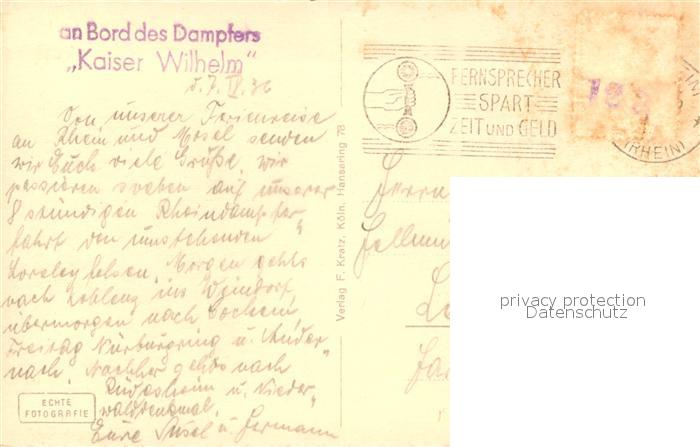 an Bord des Dampfers
„Kaiser Wilhelm"
Von unserer Ferienreise
an Rhein und Mosel senden
wir Euch viele Grüße, wir
passieren soeben auf unserer
8 stündigen Rheindampfer-
fahrt den umstehenden
Loreley felsen. Morgen gehts
nach Koblenz ins Weindorf,
übermorgen nach Cochem,
Freitag Nürburgring u. Ander"
nach. Nachher gehts nach
Rüdesheim u. Nieder"
walddenkmal.
Eure u. Hermann
ECHTE
FOTOGRAFIE
Verlag F. Kratz, Köln, Hansaring 78
FERNSPRECHER
SPART
ZEIT UND GELD
(RHEIN)
Herrn
privacy protection
Datenschutz